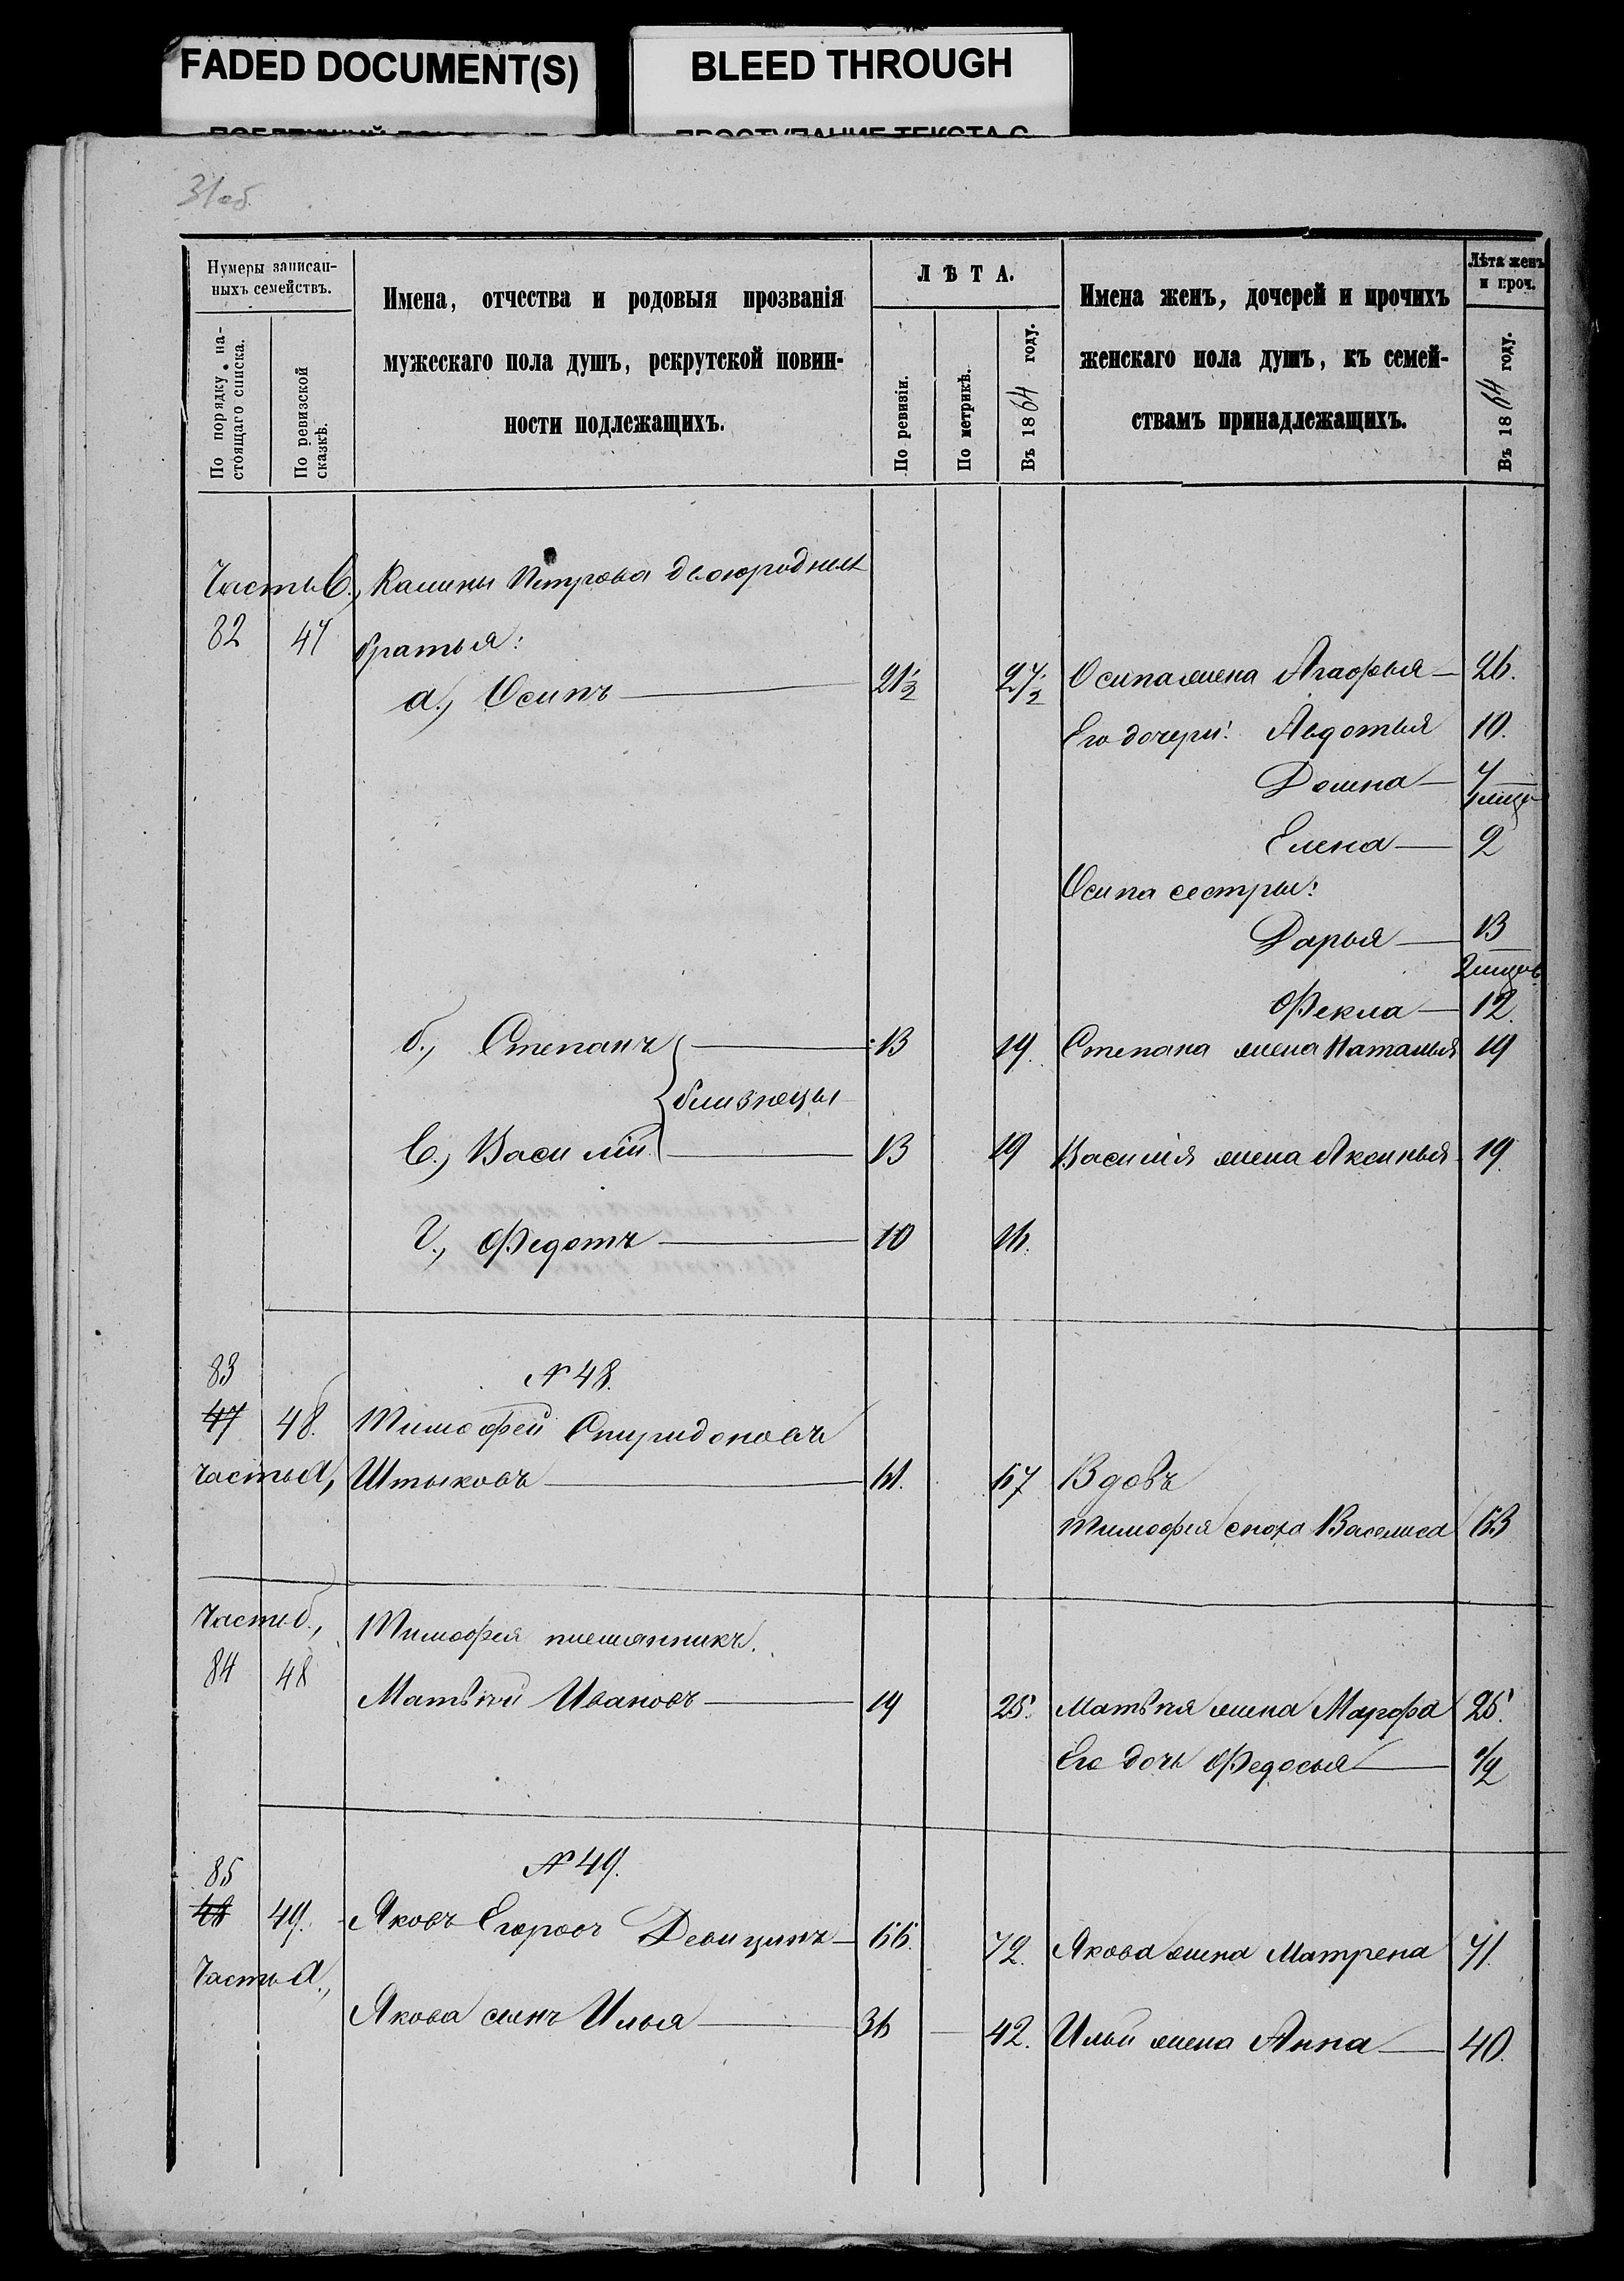 FADED DOCUMENT(S)
BLEED THROUGH
31об.
Нумеры записан-
ныхъ семействъ.
По порядку на-
стоящаго списка.
По ревизской
сказкѣ.
Имена, отчества и родовыя прозванія
мужескаго пола душъ, рекрутской повин-
ности подлежащихъ.
ЛѢТА.
По ревизіи.
По метрикѣ.
Въ 1864 году.
Имена женъ, дочерей и прочихъ
женскаго пола душъ, къ семей-
ствамъ принадлежащихъ.
Лѣта женъ
и проч.
Въ 1864 году.
Часть в., Калины Петрова двоюродные
82 47 братья:
а., Осипъ 21½ 27½ Осипа жена Агафья 26.
Его дочери: Авдотья 10.
Домна 7
Елена 2
Осипа сестры:
Дарья 13
Фекла 12.
б., Степанъ 13 19. Степана жена Наталья 19
близнецы
в., Василій 13 19 Василія жена Аксинья 19.
г., Федотъ 10 16.
83 N 48.
47 48. Тимофей Спиридоновъ
часть а, Штыковъ 61. 67 Вдовъ
Тимофея сноха Василиса 53
Часть б.,
Тимофея племянникъ.
84 48
Матвѣй Ивановъ 19 25. Матвѣя жена Марфа 25.
Его дочь Федосья ½
85 N 49.
48 49. Яковъ Егоровъ Девицинъ 66. 72. Якова жена Матрена 71.
Часть а.,
Якова сынъ Илья 36 42. Ильи жена Анна 40.